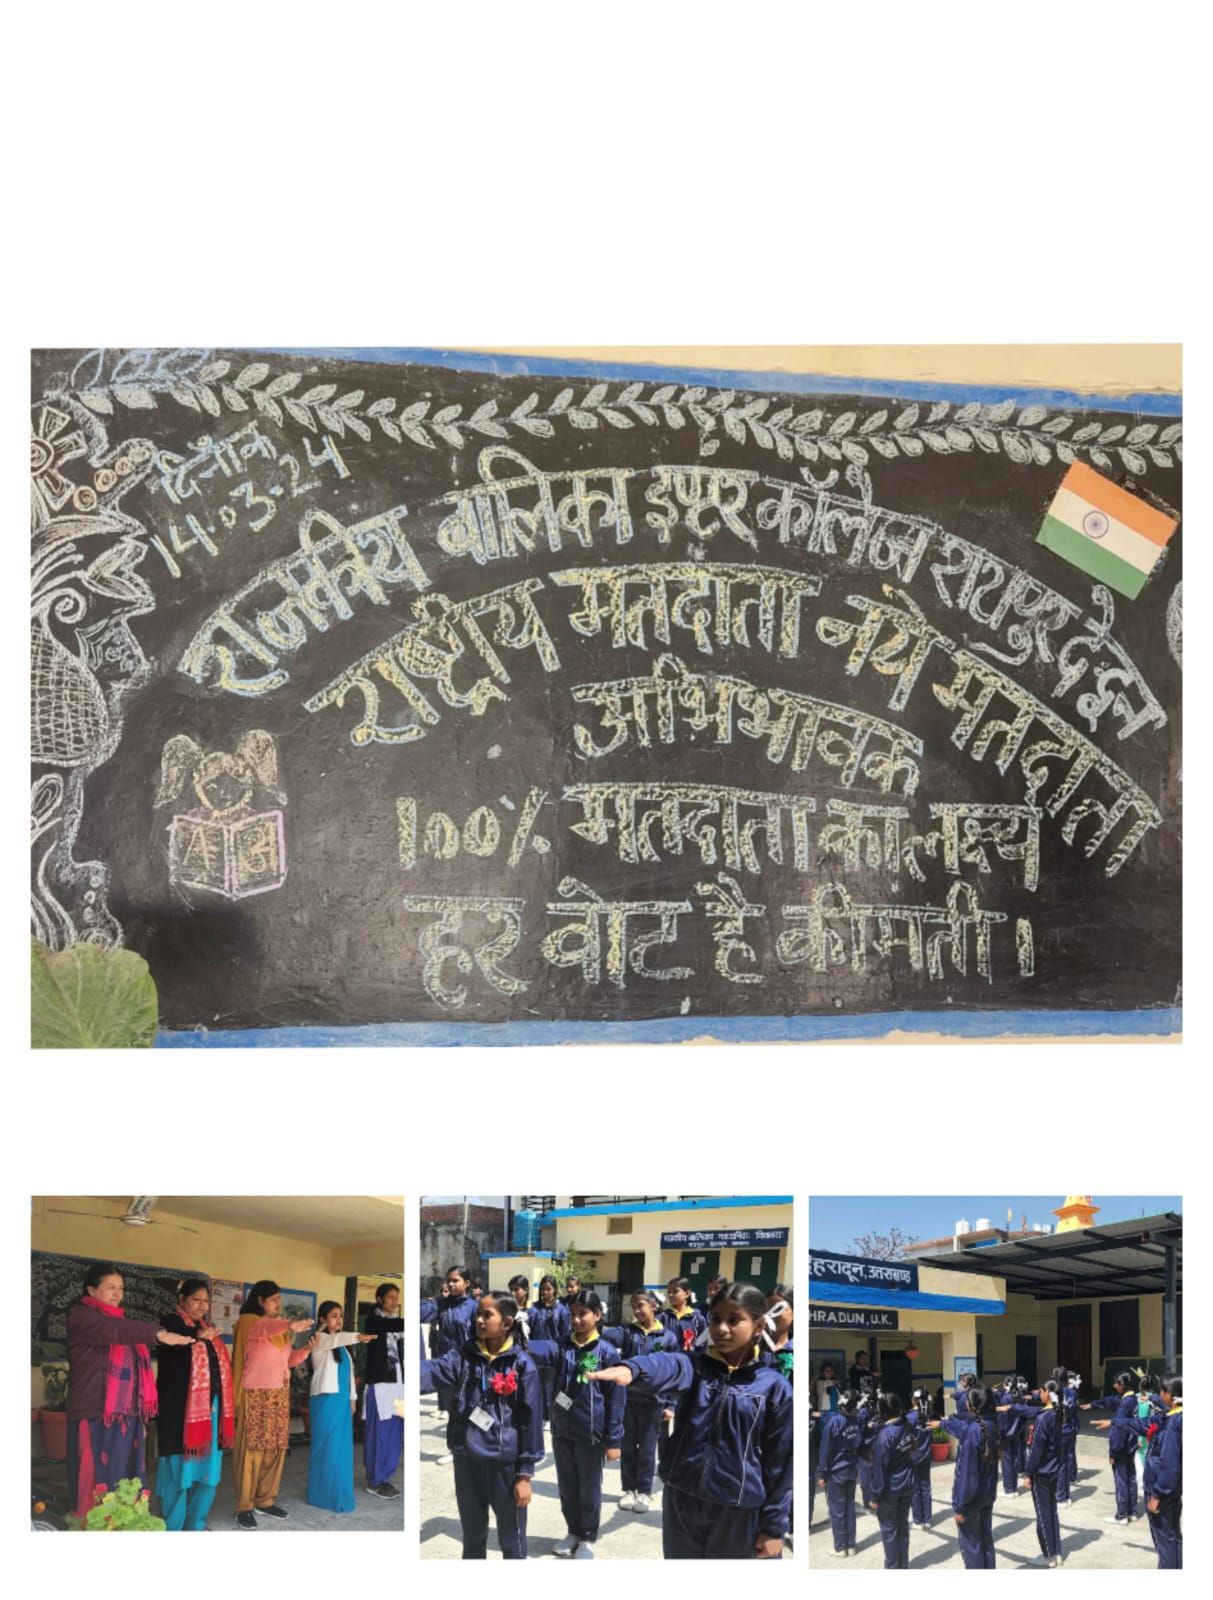 दिनाँक
14.03.24
राजकीय बालिका इण्टर कॉलेज रायपुर दे॰दून
राष्ट्रीय मतदाता नये मतदाता
अभिभावक
100% मतदाता का लक्ष्य
हर वोट है कीमती।
रहरादून, उत्तराखण्ड
HRADUN, U.K.